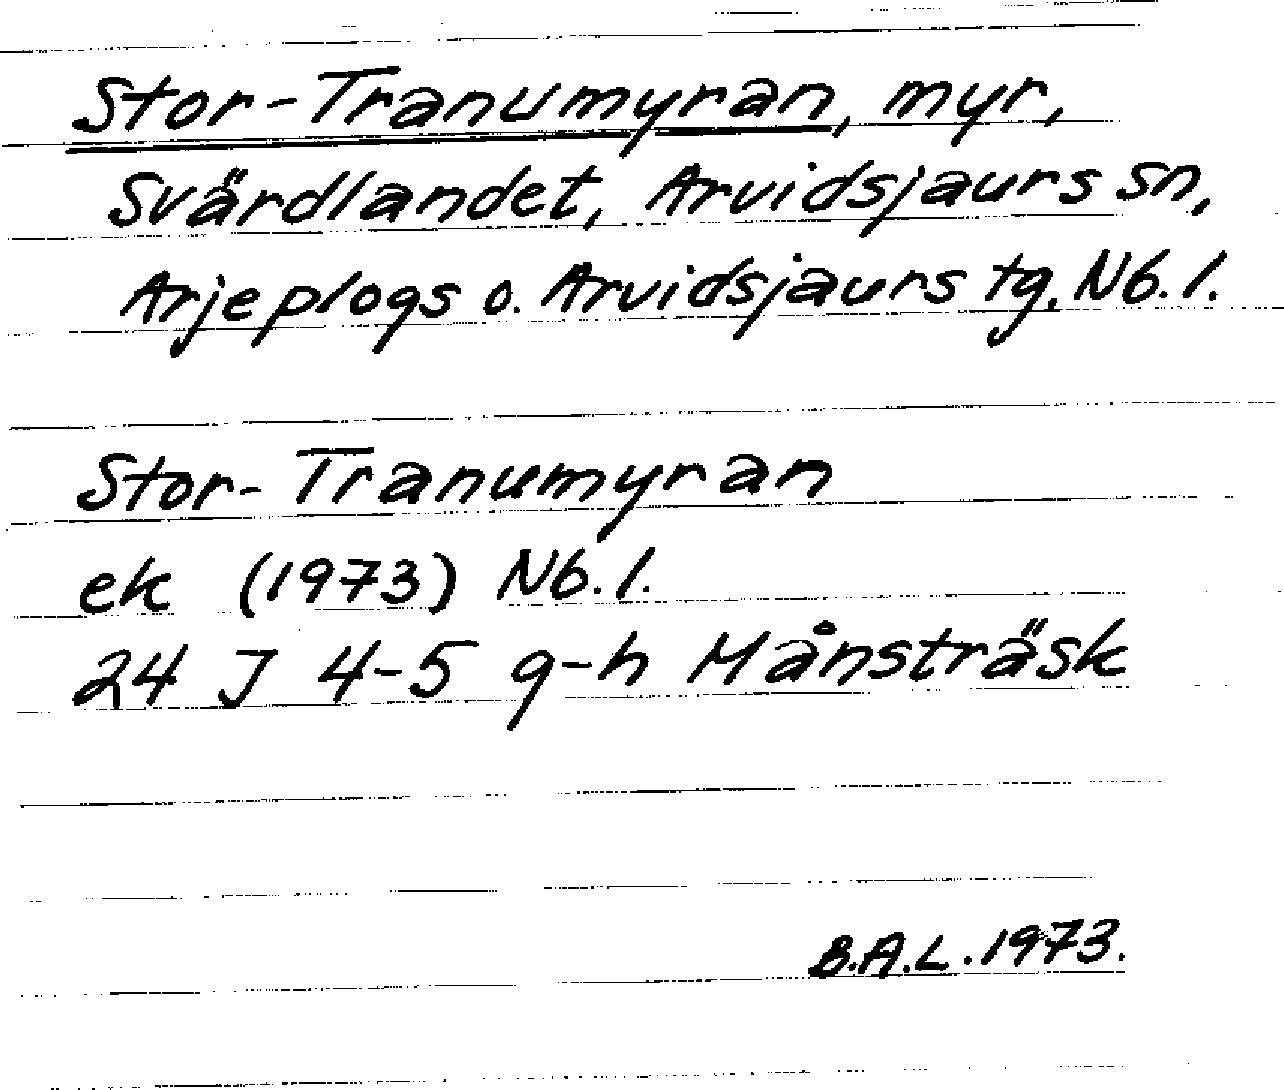 Stor-Tranumyran, myr,
Svärdlandet, Arvidsjaurs sn,
Arjeplogs o. Arvidsjaurs tg. Nb. l.
Stor-Tranumyran
ek (1973) Nb. l.
24 J 4-5 g-h Månsträsk
B.A.L. 1973.